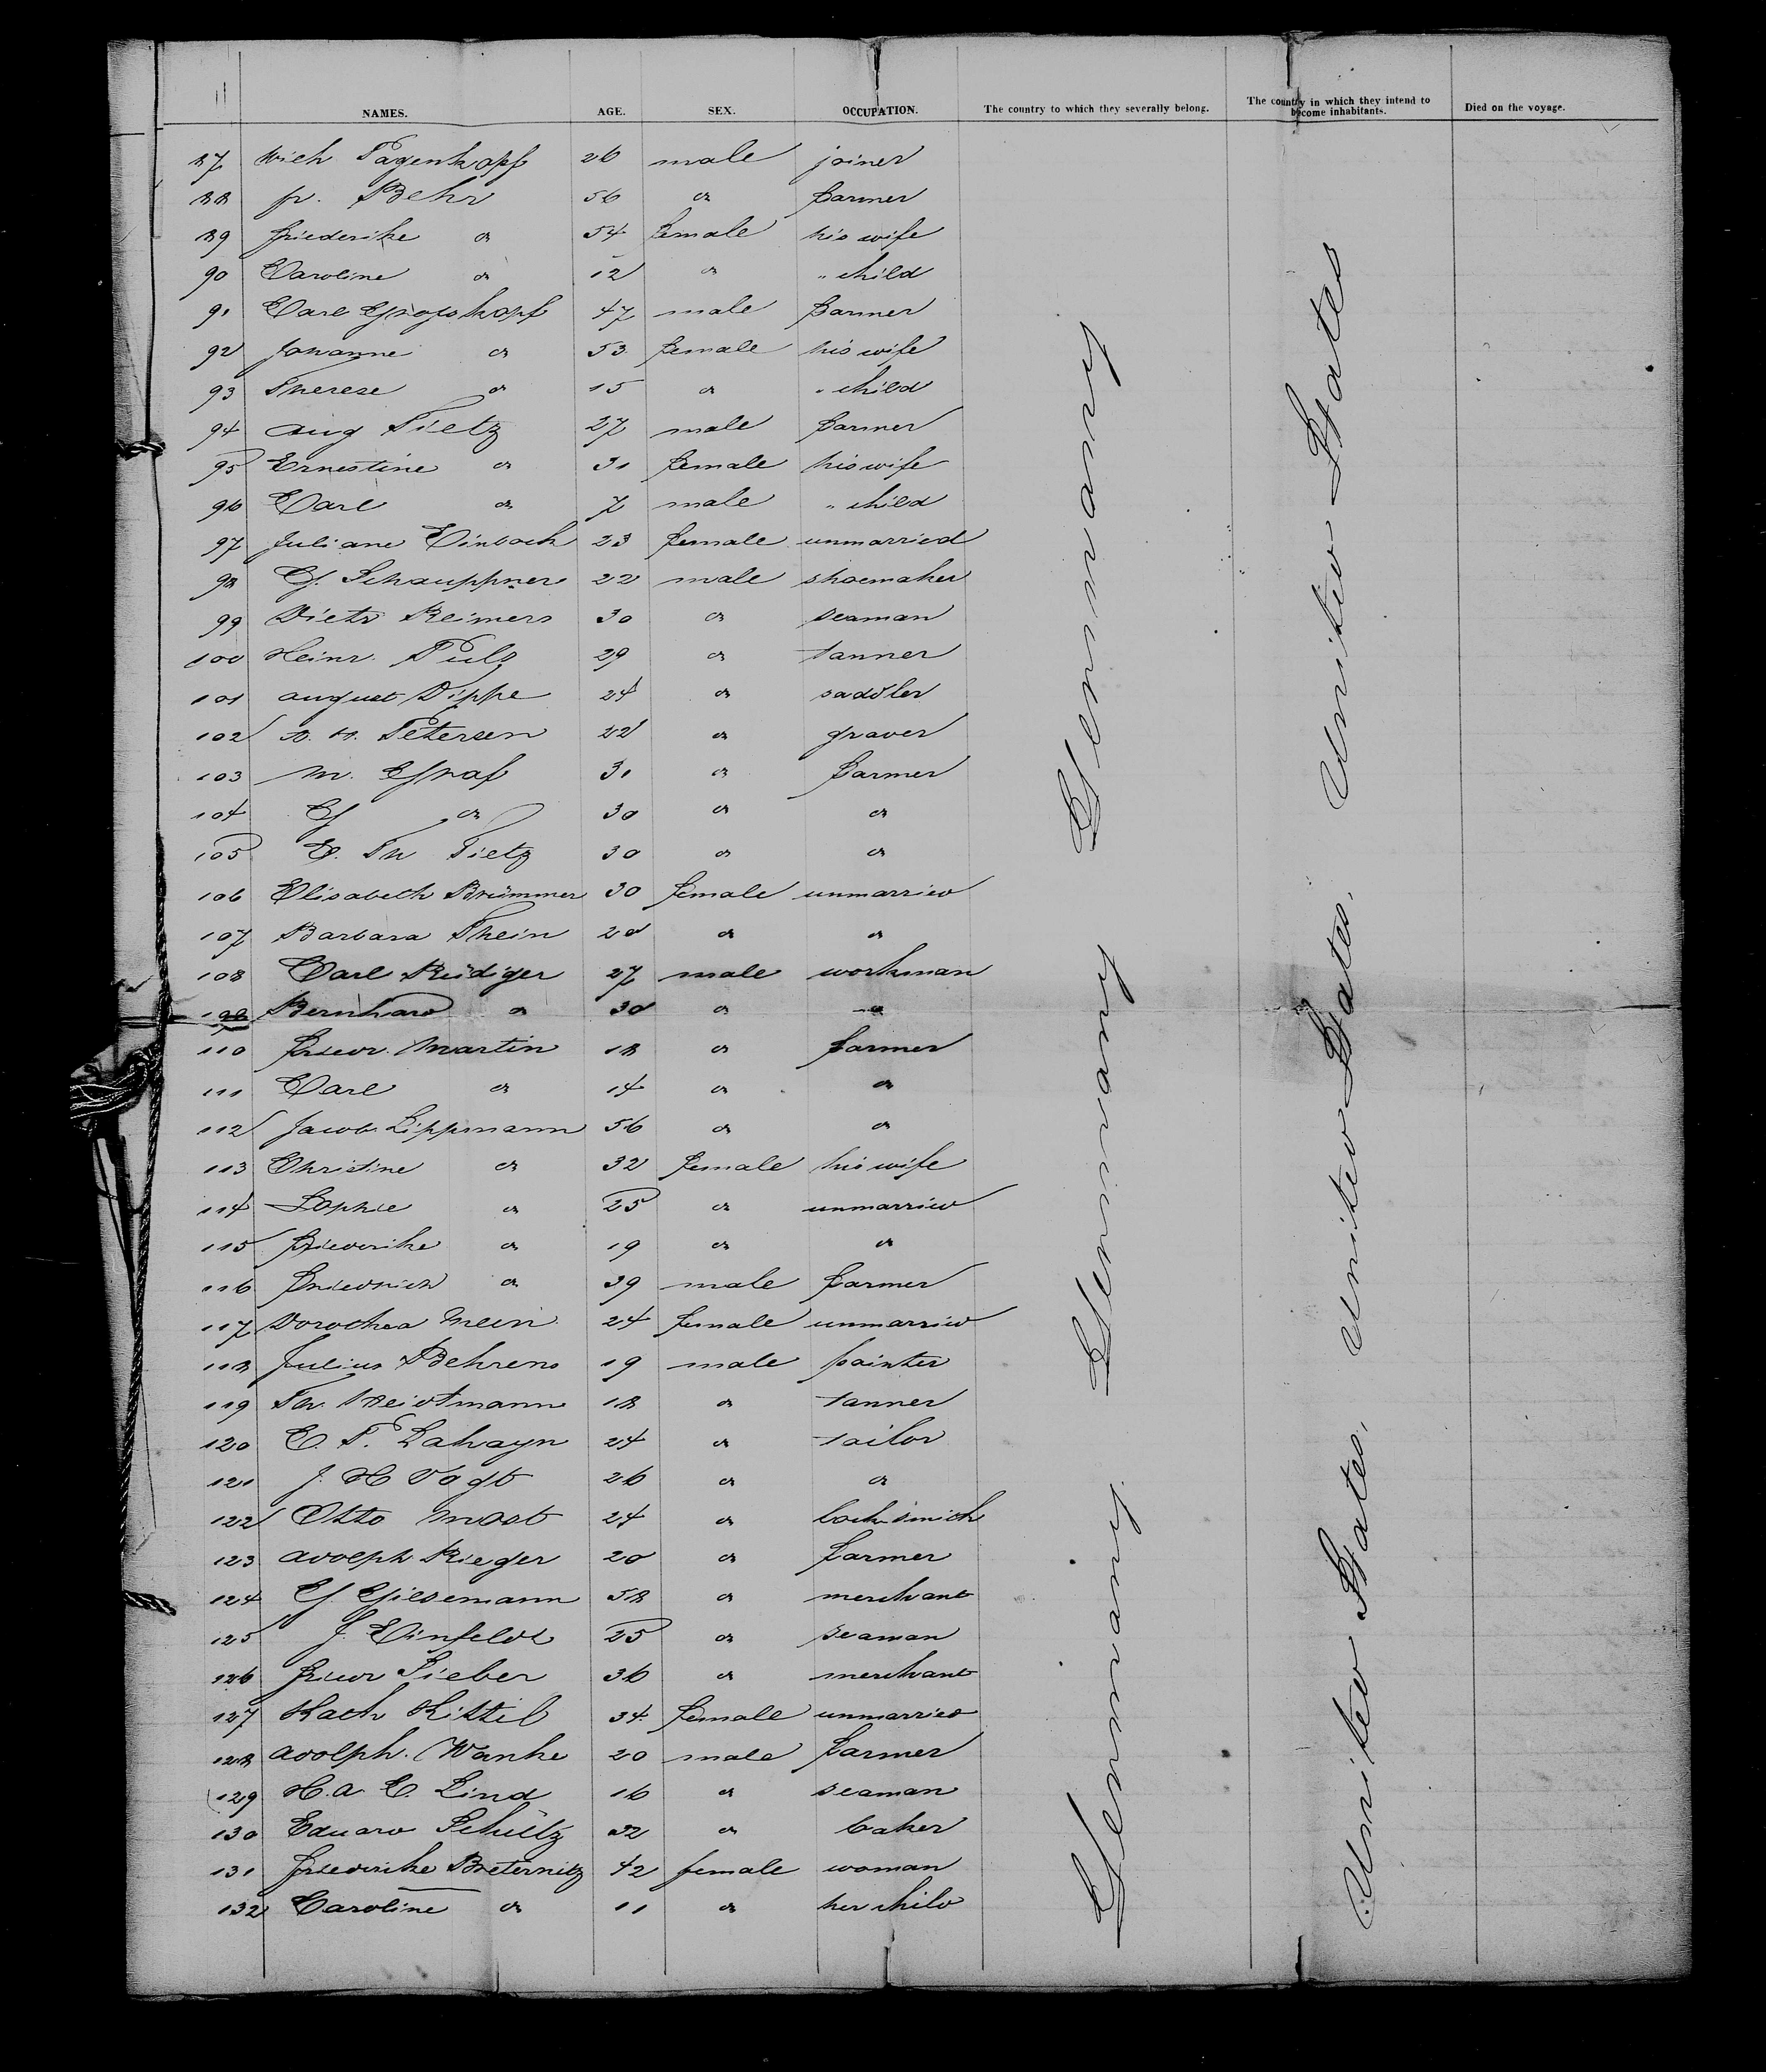 NAMES. AGE. SEX. OCCUPATION. The country to which they severally belong. The country in which they intend to become inhabitants. Died on the voyage.
87 Wich Pagenkopf 26 male joiner
88 fr. Behr 56 do farmer
89 Friederike do 54 female his wife
90 Caroline do 12 do " child
91 Carl Grosskopf 47 male farmer
92 Johanne do 53 female his wife
93 Therese do 15 do " child
94 Aug Tietz 27 male farmer
95 Ernestine do 31 female his wife
96 Carl do 7 male " child
97 Juliane 23 female unmarried
98 G. Schauppner 22 male shoemaker
99 Dietr Reimers 30 do seaman
100 Heinr. Pulz 29 do tanner
101 August Dippe 24 do saddler
102 Petersen 22 do graver
103 M. Graf 31 do farmer
104 G do 30 do do
105 C. Th Tietz 30 do do
106 Elisabeth Brümmer 30 female unmarried
107 Barbara Thein 20 do do
108 Carl Rüdiger 27 male workman
109 Bernhard do 30 do do
110 Friedr. Martin 18 do farmer
111 Carl do 14 do do
112 Jacob Lippmann 56 do do
113 Christine do 32 female his wife
114 Sophie do 25 do unmarried
115 Friederike do 19 do do
116 Friedrich do 39 male farmer
117 Dorothea Mein 24 female unmarried
118 Julius Behrens 19 male painter
119 Th. 18 do tanner
120 C. F. 24 do tailor
121 J. H Vogt 26 do do
122 Otto Most 24 do locksmith
123 Adolph Rieger 20 do farmer
124 G Giesemann 58 do merchant
125 J. Einfeldt 25 do seaman
126 Friedr Sieber 36 do merchant
127 Kath Kistil 34 female unmarried
128 Adolph. Wanke 20 male farmer
129 H. A. C. Lind 16 do seaman
130 Eduard Schültz 32 do baker
131 Friederike Breternitz 42 female woman
132 Caroline do 11 do her child
Germany
Germany
Germany
United States
United States.
United States.